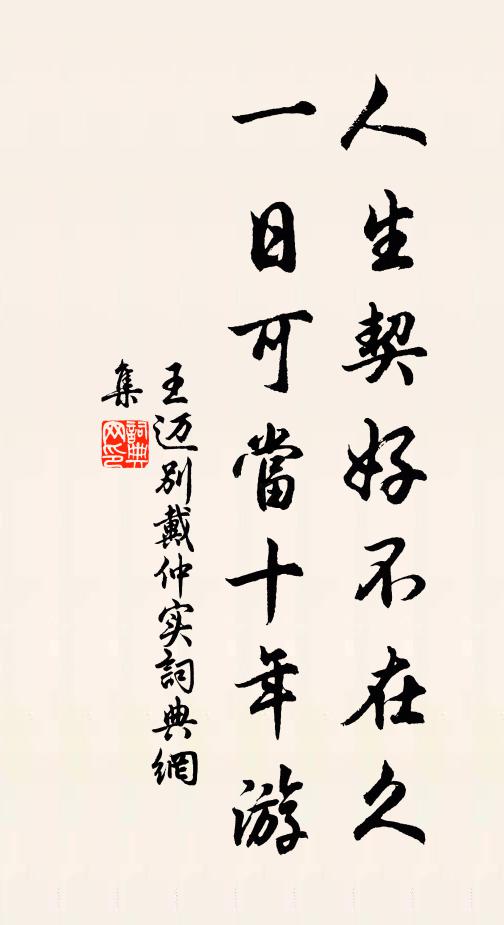 人生契好不在久
一日可當十年游
王迈別戴仲实詞典網
集
詞典
网印